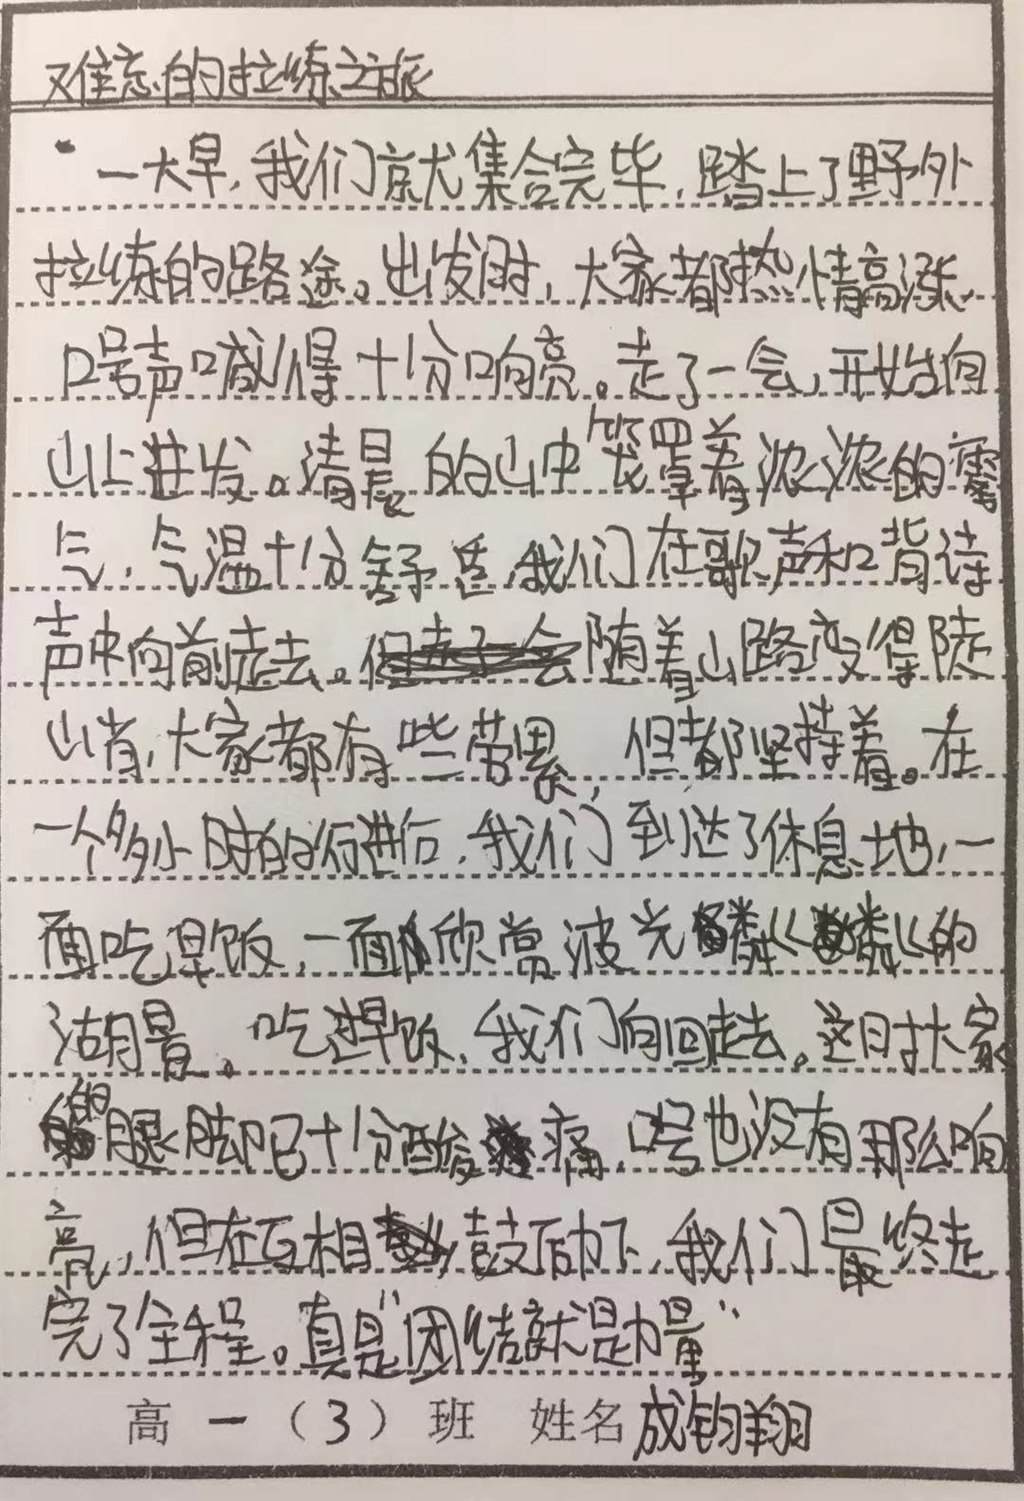 难忘的拉练之旅
一大早,我们就集合完毕,踏上了野外
拉练的路途。出发时,大家都热情高涨,
口号声喊得十分响亮。走了一会,开始向
山上进发。清晨的山中笼罩着浓浓的雾
气,气温十分舒适,我们在歌声和背诗
声中向前走去。随着山路变得陡
峭,大家都有些劳累,但都坚持着。在
一个多小时的行进后,我们到达了休息地,一
面吃早饭,一面欣赏波光粼粼的
湖景。吃过早饭,我们向回走去。这时大家
的腿脚已十分酸痛,口号也没有那么响
亮,但在互相鼓励下,我们最终走
完了全程。真是“团结就是力量”
高一(3)班 姓名 成钧翔